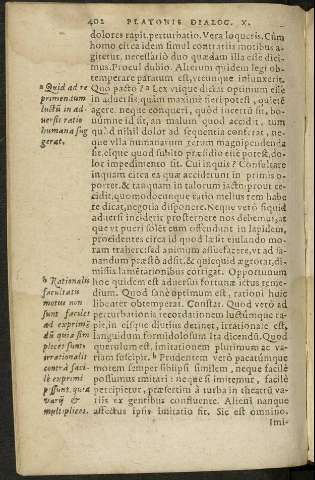 402 PLATONIS DIALOG. X.
dolores rapit, perturbatio. Vera loqueris. Cùm
homo circa idem simul contrariis motibus a-
gitetur, necessariò duo quædam illi esse dici-
mus. Proculdubio. Alterum quidem legi ob-
temperare paratum est, vtcunque iniunxerit.
Quo pacto? a Lex vtique dictat optimum esse
in aduersis quàm maximè fieri potest, quietè
agere, neque conqueri, quòd incertū sit, bo-
númne id sit, an malum quod accidit, tum
quòd nihil dolor ad sequentia conferat, ne-
que vlla humanarum rerum magnipendenda
sit, eique quod subito præsidio esse poteſt, do-
lor impedimento sit. Cui inquis? Consultare
inquam circa ea quæ acciderunt in primis o-
portet, & tanquam in talorum iactu prout ce-
cidit, quomodocunque ratio melius rem habe
re dicat, negotia disponere. Neque verò siquid
aduersi inciderit prosternere nos debemus, at
que vt pueri solēt cùm offendunt in lapidem,
procidentes circa id quod læsit eiulando mo-
ram trahere: sed animum assuefacere, vt ad sa-
nandum præstò adsit, & quicquid ægrotat, di-
missis lamētationibus corrigat. Opportunum
hoc quidem est aduersus fortunæ ictus reme-
dium. Quod sanè optimum est, rationi huic
libenter obtemperat. Constat. Quod verò ad
perturbationis recordationem luctúmque ra-
pit, in eisque diutius detinet, irrationale est,
languidum formidolosum Ita dicendū. Quod
querulum est, imitationem plurimam ac va-
riam suscipit. b Prudentem verò pacatúmque
morem semper sibiipsi similem, neque facilè
possumus imitari: neque si imitemur, facilè
percipietur, præsertim à turba in theatrū va-
riis ex gentibus confluente. Alieni nanque
affectus ipsis imitatio fit. Sic est omnino.
Imi-
a Quid ad re
primendum
luctū in ad
uersis ratio
humana sug
gerat.
b Rationalis
facultatis
motus non
sunt faciles
ad exprimē
dū quia sim
plices sunt:
irrationalis
contrà faci-
lè exprimi
possunt, quia
varij &
multiplices.